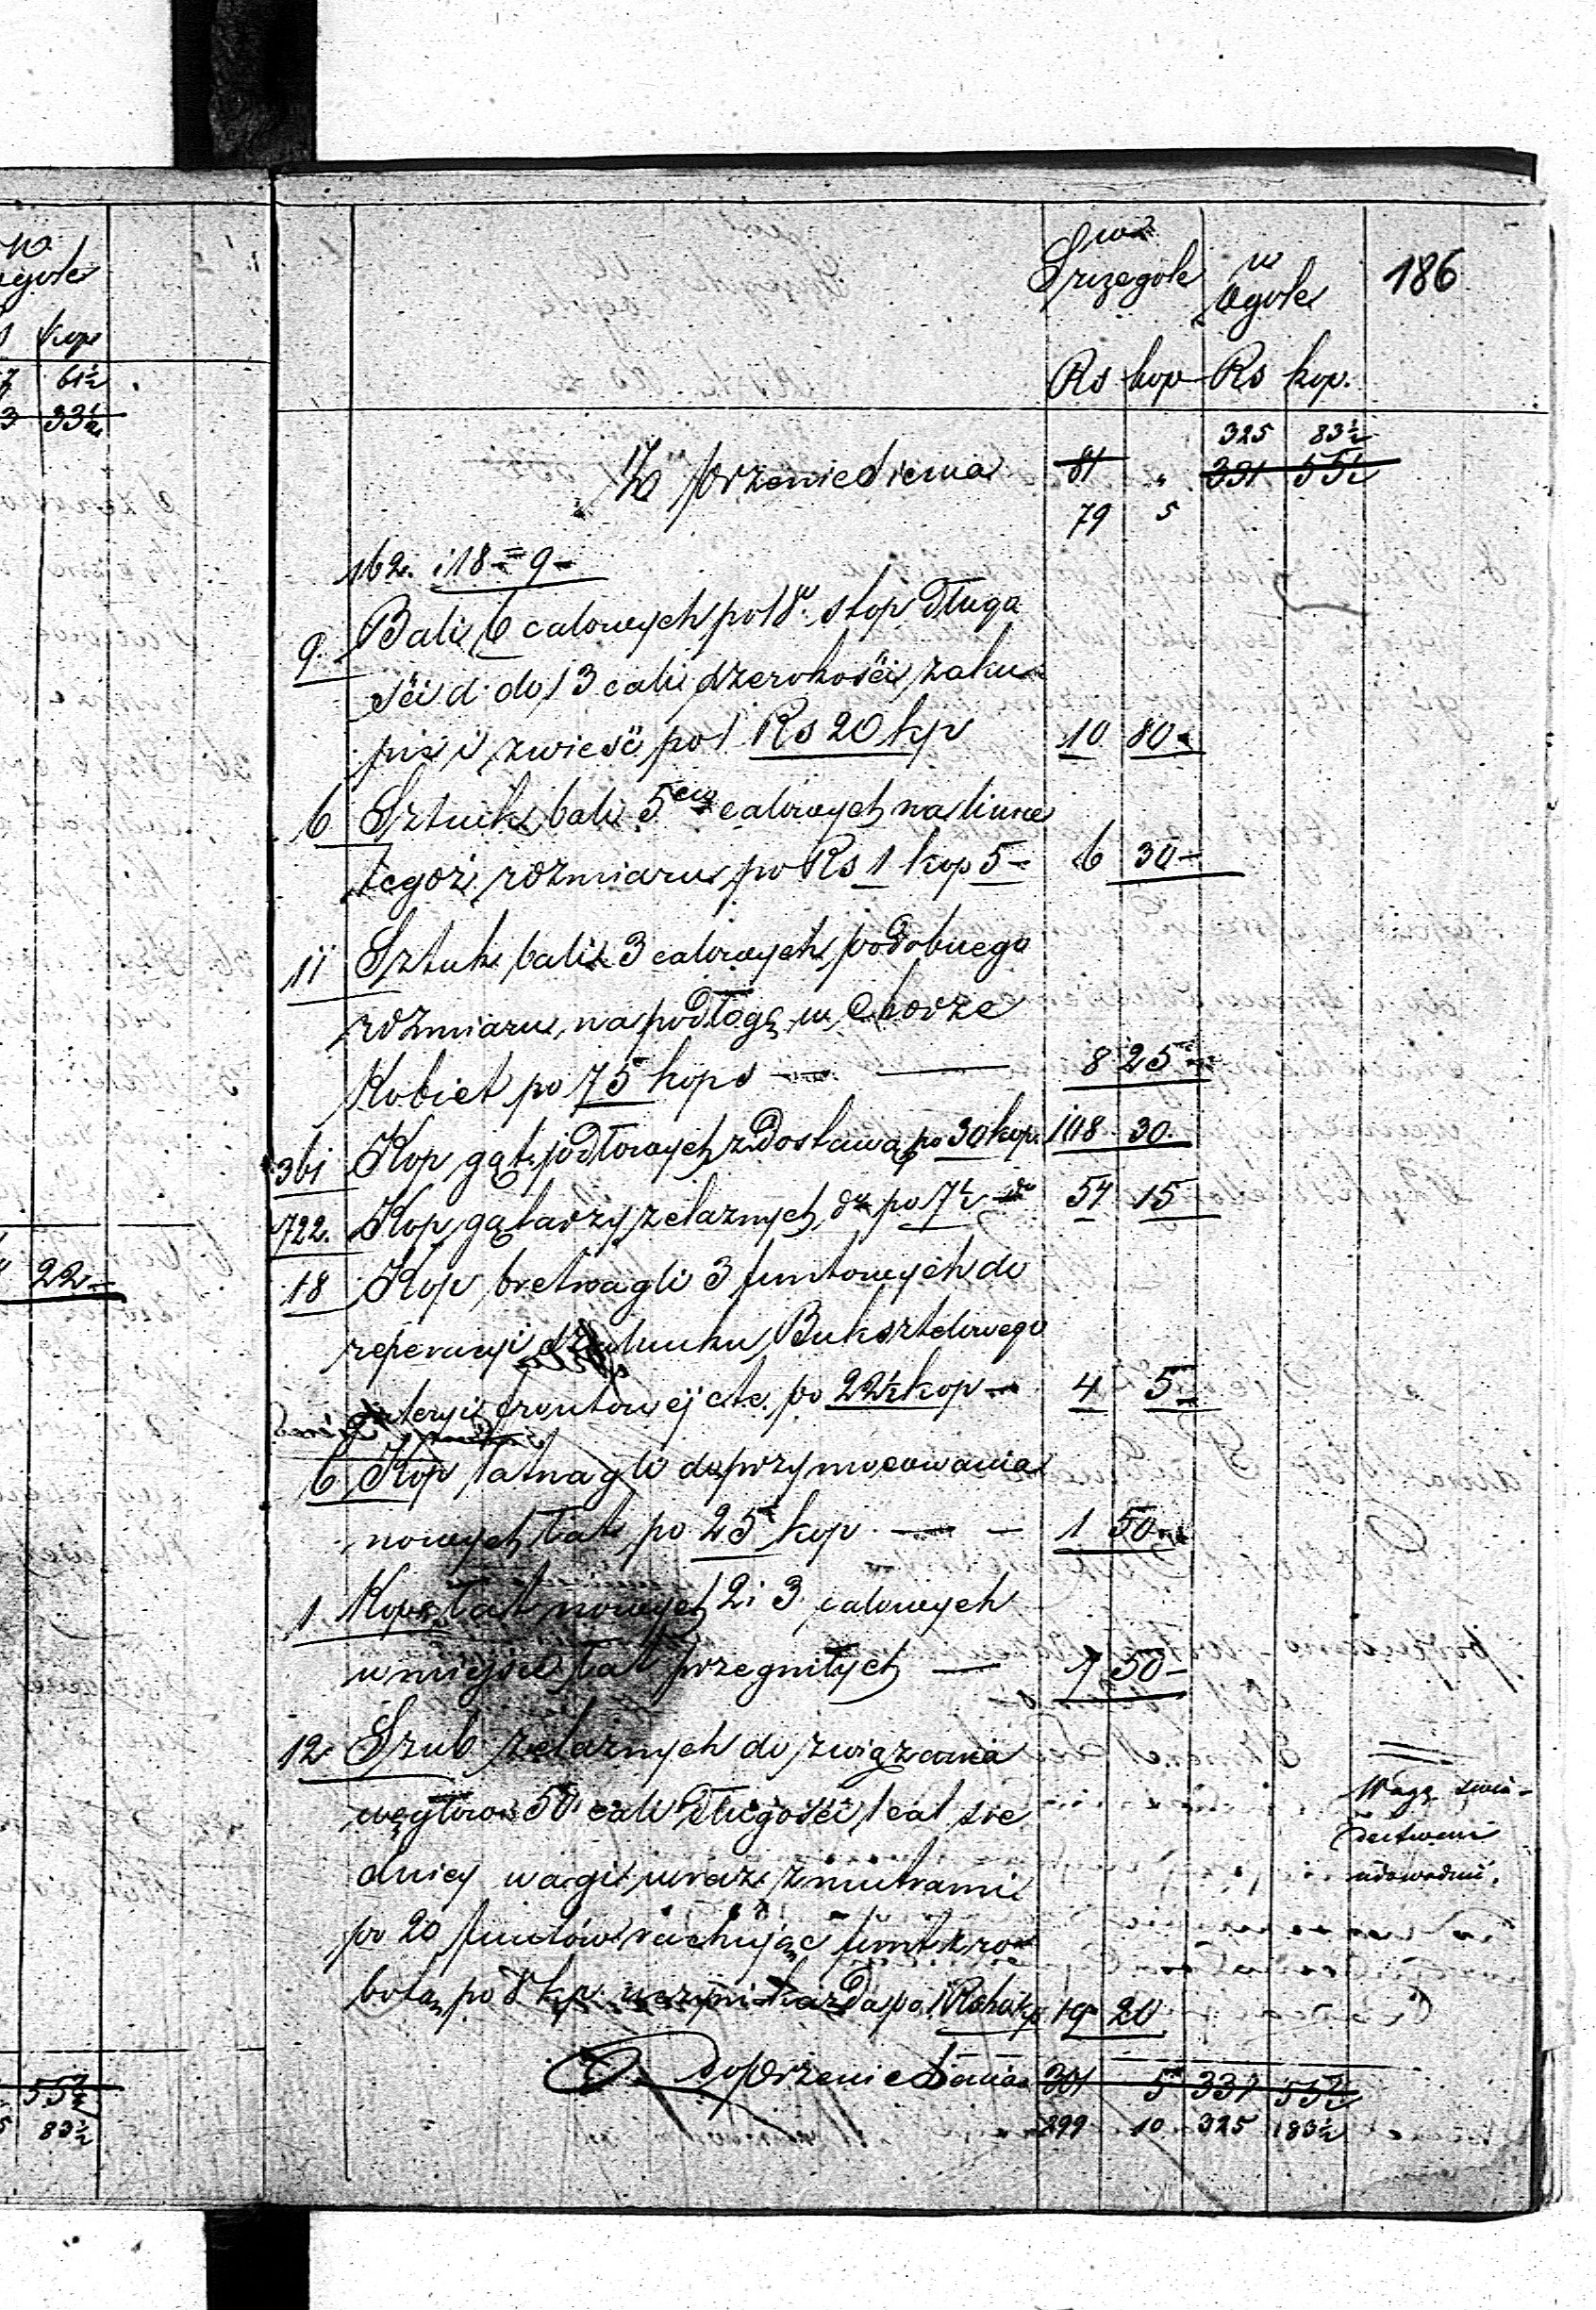 w
Szczególe
w
Ogóle
186
Rs kop Rs kop.
325 83½
Z przeniesienia 81 " 331 55½
79 5
162. : 18 = 9 -
9. Bali 6 calowych po 18 stop długo
ści d. do 13 cali szerokości zaku
pić i zwieść po 1 Rs 20 kp 10 80
6 Sztuk bali 5cio calowych na
tegoż rozmiaru po Rs 1 kop 5 - 6 30 -
11 Sztuk bali 3 calowych podobnego
rozmiaru na podłogę w Chorze
Kobiet po 75 kop - 8 25
361 Kop gąt jodłowych z dostawą po 30 kop. 108 30.
722. Kop gątarzy żelaznych do po 7½ do 54 15
18 Kop bretnagli 3 funtowych do
reperacyi Buksztelowego
frontowej etc. po 22½ kop - 4 5
6 Kop łatnagli do przymocowania
nowych łat po 25 kop - 1 50
1 Kopę łat nowych 2 i 3 calowych
w miejsce łat przegniłych - 7 50 -
12 Szrub żelaznych do związania
węgłów 50 cali długości 1 cal śre
dnicy wagi wraz z mutrami
po 20 funtów rachując funt z ro
botą po 8 kp uczyni każda po 1 Rs 60 kp 19 20
Wagę świa-
dectwem
udowodnić.
Do przeniesienia 301 5 331 55½
299 10 325 83½
w
ogóle
kop
61½
33½
22 -
55½
83½